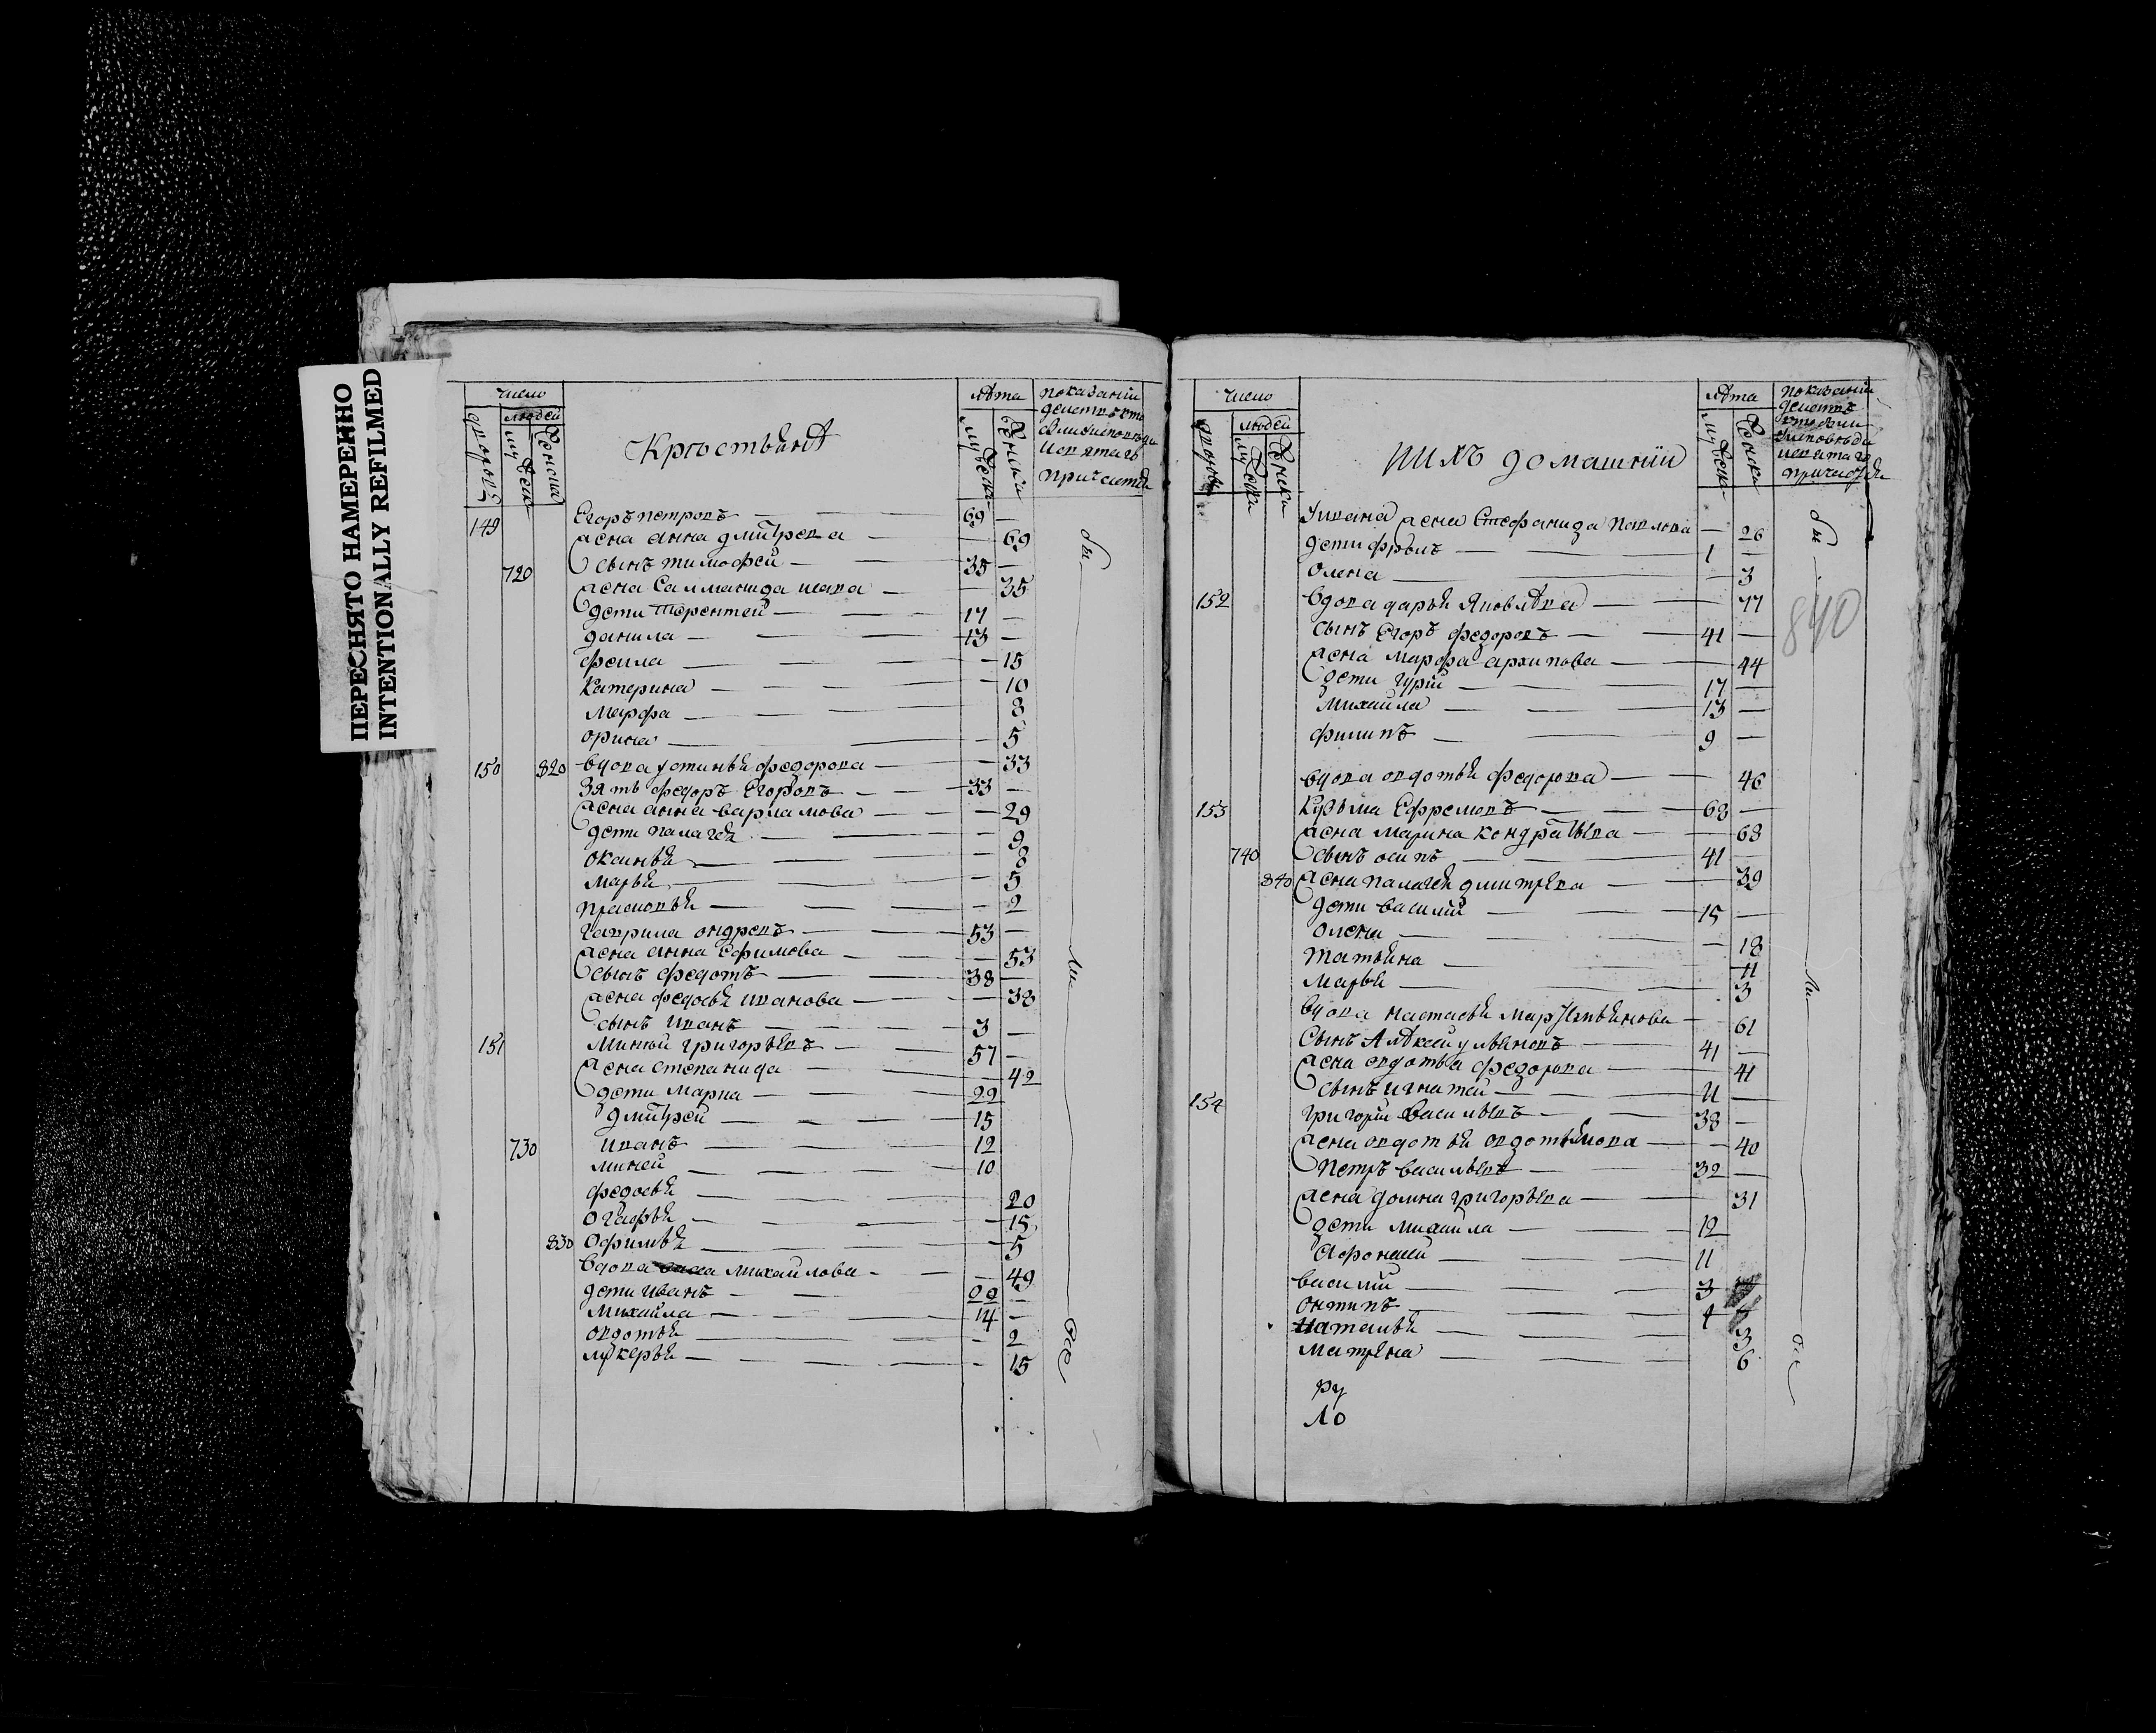 ПЕРЕСНЯТО НАМЕРЕННО
INTENTIONALLY REFILMED
число
людей
дворовъ
муЖеска
Женска
Крѣстьянѣ
лѣта
муЖеска
Женска
показаніи
исвятаго
причастія
149 Егоръ петровъ — 69 —
Жена анна дмитрева — 69
720 Сынъ тимофей — 35 —
Жена Саламанида — 35
дети терентеи — 17 —
данила — 13 —
феꙋла — 15
катерина — 10
марфа — 8
орина — 5
150 820 Вдова устинья федорова — 33
Зять федоръ Егоровъ — 33 —
Жена анна варламова — 29
дети палагея — 9
оксинья — 8
марья — 5
прасковья — 2
гаврила ондревъ — 53 —
Жена анна Ефимова — 53
Сынъ федотъ — 38 —
Жена федосья иванова — 38
Сынъ иванъ — 3 —
151 Миней григорьевъ — 57 —
Жена степанида — 42
дети марка — 22
дмитрей — 15
730 иванъ — 12
миней — 10
федосья — 20
огафья — 15
830 офимья — 5
Вдова михайлова — 49
дети иванъ — 22 —
михайла — 14 —
овдотья — 2
лукерья — 15
бы
ли
все
число
людей
дворовъ
муЖеска
Женска
ИИХЪ домашнии
лѣта
муЖеска
Женска
показаніи
исвятаго
причастія
840
Ивана Жена Стефанида павлова — 26
дети фролъ — 1 —
олена — 3
152 Вдова дарья Яковлѣва — 77
Сынъ Егоръ федоровъ — 41 —
Жена марфа архипова — 44
дети гурій — 17 —
михайла — 13 —
филипъ — 9 —
вдова овдотья федорова — 46
153 Кузьма Ефремовъ — 68 —
Жена марина кондратьева — 68
740 Сынъ осипъ — 41 —
840 Жена палагея дмитрева — 39
дети василій — 15 —
олена — 18
татьяна — 11
марья — 3
Вдова настасья — 61
Сынъ Алѣксей ульяновъ — 41 —
Жена овдотья федорова — 41
Сынъ игнатей — 11 —
154 григорій васильевъ — 38 —
Жена овдотья — 40
Петръ васильевъ — 32 —
Жена домна григорьева — 31
дети михайла — 12
Афонасей — 11
василій — 3
онтипъ — 1
наталья — 3
матрена — 6
ру
ло
бы
ли
все